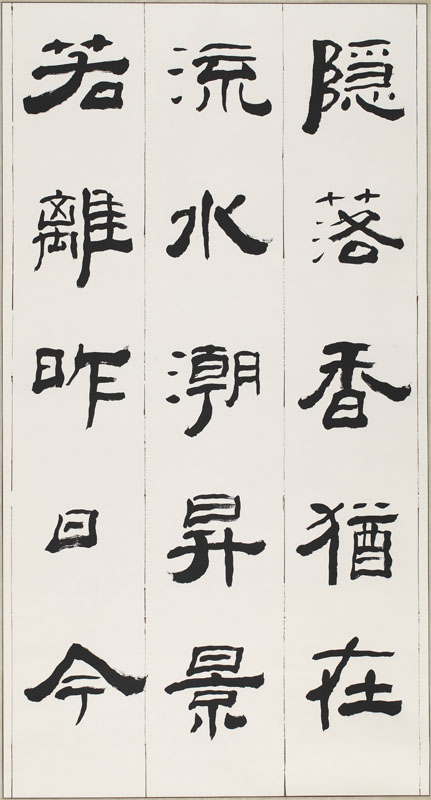 隱落香猶在
流水潮昇景
若離昨日今